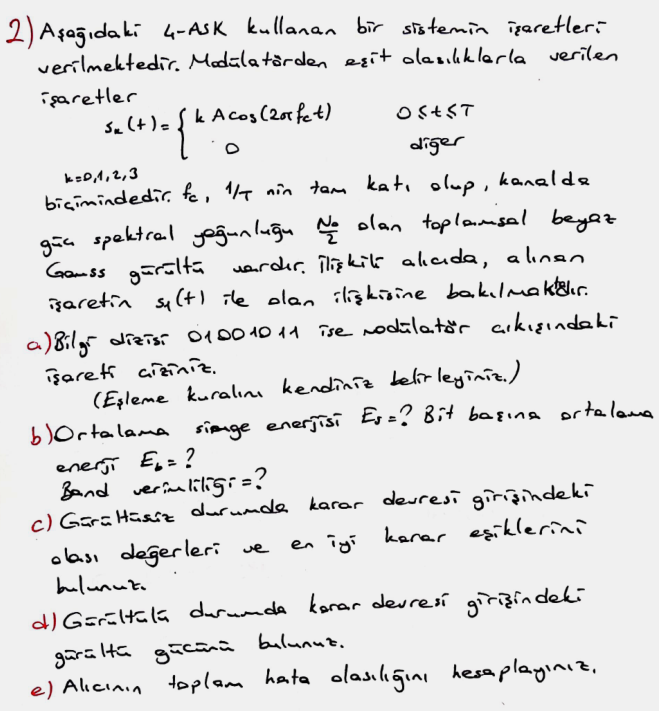 2) Aşağıdaki 4-ASK kullanan bir sistemin işaretleri
verilmektedir. Modülatörden eşit olasılıklarla verilen
işaretler
s_k(t) = { k A cos(2πf_c t)   0≤t≤T
0   diğer
k=0,1,2,3
biçimindedir. f_c, 1/T nin tam katı olup, kanalda
güç spektral yoğunluğu N_0/2 olan toplamsal beyaz
Gauss gürültü vardır. İlişkili alıcıda, alınan
işaretin s_1(t) ile olan ilişkisine bakılmaktadır.
a) Bilgi dizisi 01001011 ise modülatör çıkışındaki
işareti çiziniz.
(Eşleme kuralını kendiniz belirleyiniz.)
b) Ortalama simge enerjisi E_s=? Bit başına ortalama
enerji E_b=?
Band verimliliği=?
c) Gürültüsüz durumda karar devresi girişindeki
olası değerleri ve en iyi karar eşiklerini
bulunuz.
d) Gürültülü durumda karar devresi girişindeki
gürültü gücünü bulunuz.
e) Alıcının toplam hata olasılığını hesaplayınız.